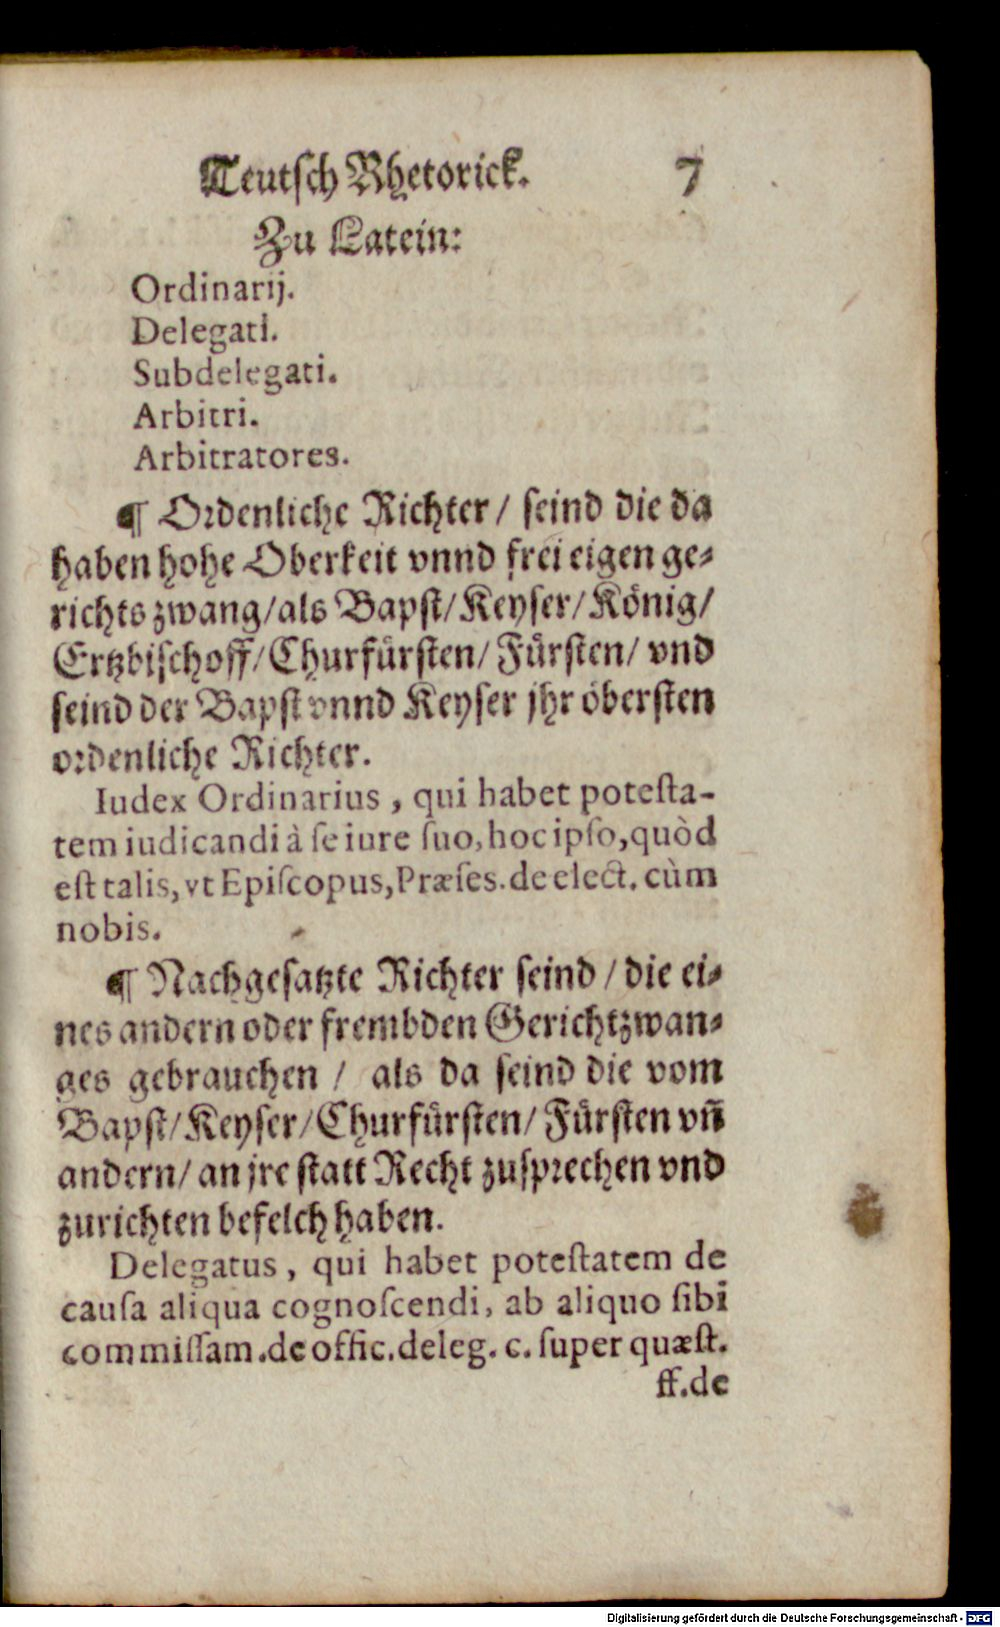 Teutsch Rhetorick. 7
Zu Latein:
Ordinarij.
Delegati.
Subdelegati.
Arbitri.
Arbitratores.
¶ Ordenliche Richter / seind die da
haben hohe Oberkeit vnnd frei eigen ge⸗
richts zwang/als Bapst/Keyser/König/
Ertzbischoff/Churfürsten/Fürsten/vnd
seind der Bapst vnnd Keyser jhr öbersten
ordenliche Richter.
Iudex Ordinarius, qui habet potesta-
tem iudicandi à se iure suo, hoc ipso, quòd
est talis, vt Episcopus, Præses. de elect. cùm
nobis.
¶ Nachgesatzte Richter seind / die ei⸗
nes andern oder frembden Gerichtzwan⸗
ges gebrauchen / als da seind die vom
Bapst/Keyser/Churfürsten/Fürsten vñ
andern/an jre statt Recht zusprechen vnd
zurichten befelch haben.
Delegatus, qui habet potestatem de
causa aliqua cognoscendi, ab aliquo sibi
commissam. de offic. deleg. c. super quæst.
ff. de
Digitalisierung gefördert durch die Deutsche Forschungsgemeinschaft - DFG